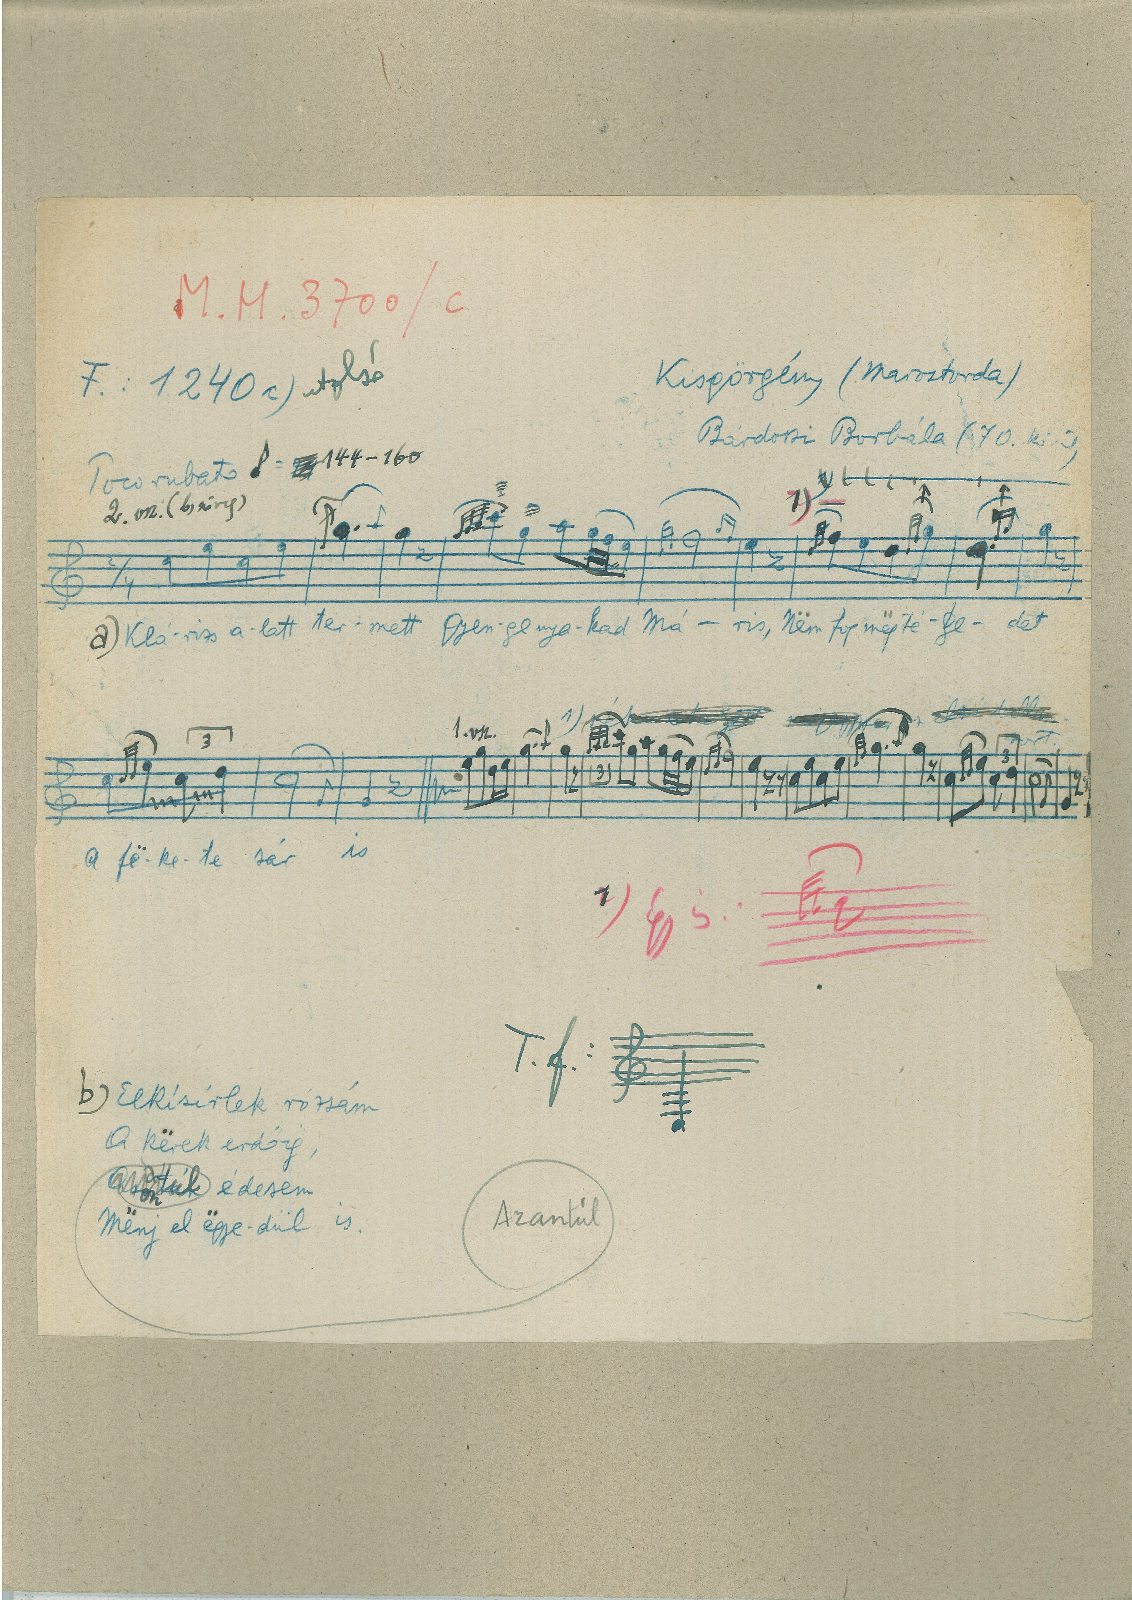 M.H. 3700/c
F.: 1240 c) utolsó
Kisgörgény (Marostorda)
Bárdosi Borbála (70.
Poco rubato ♪ = 144-160
2. vsz. (b szöveg)
1)
2/4
a) Klá-ris a-latt ter-mett Gyen-genya-kad Má - ris, Nëm fog mëg té-ge-det
3
1. vsz. 1)
3
3
a fë-ke-te sár is
1) Így is:
T. f.:
b) Elkisirlek rózsám
A kërek erdőig,
édesem
Mënj el ëgye-dül is.
Azantúl